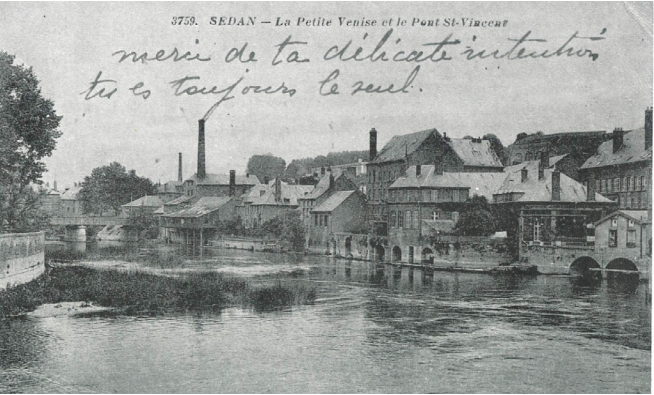 3759. SEDAN – La Petite Venise et le Pont St-Vincent
merci de ta délicate intention
tu es toujours le seul.